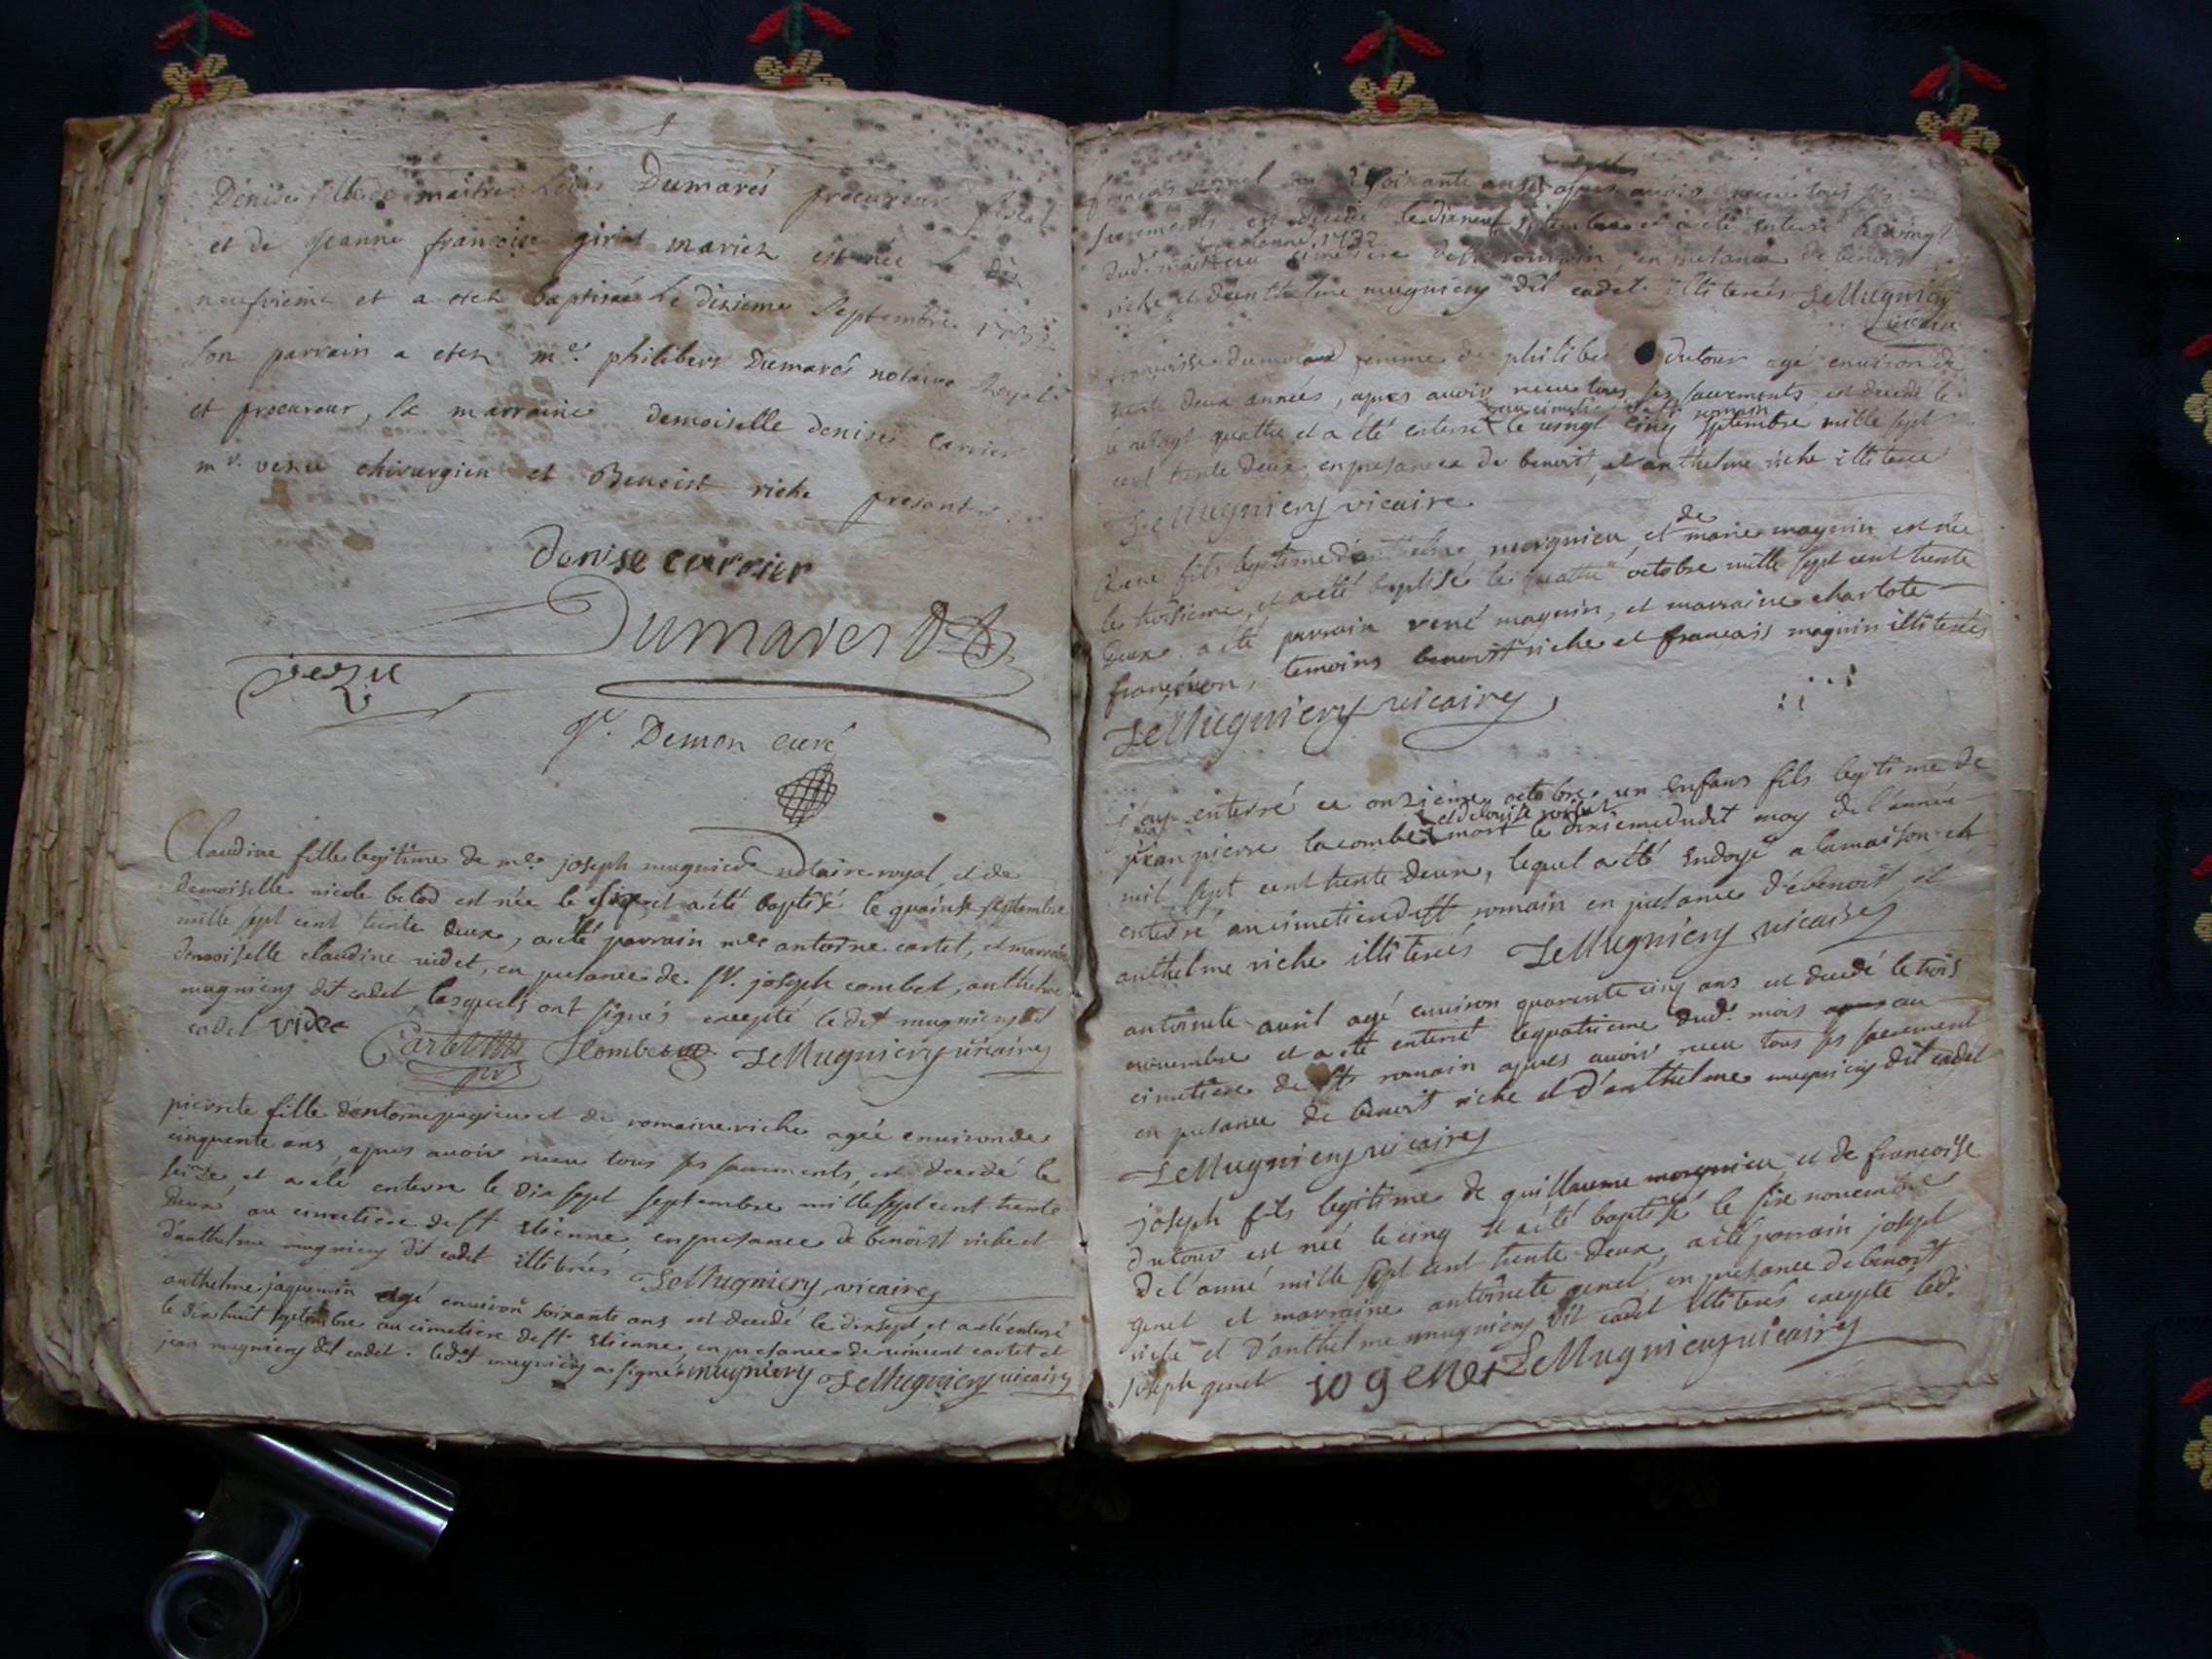 Denise fille de maitre Louis Dumarés procureur fiscal
et de jeanne françoise giriet mariez est née le
neufvieme et a esteh baptisée le dixieme Septembre
Son parrain a esteh mre. philibert Dumarés notaire Royal
et procureur, sa marraine demoiselle denise Carrier
mr. vezu chirurgien et Benoist riche presents
denise carrier
Dumares
vezu
Demon curé
Claudine fille legitime de mre joseph mugnier notaire royal, et de
demoiselle nicole belod est née le six et a été baptisé le quainse septembre
mille sept cent trente deux, a été parrain mre antoine cartet, et marraine
demoiselle claudine videt, en presance de Sr. joseph combet, anthelme
mugniery dit cadet, lesquels ont signés excepté ledit mugniery dit
cadet vide
Cartet Jcombet LeMugniery vicaire
pierrete fille d'entoine et de romaine riche agée environ de
cinquente ans, apres avoir receu tous ses sacrements, est decedé le
seize et a été enterré le dix sept septembre mille sept cent trente
deux au cimetiere de st etienne en presance de benoist riche et
d'anthelme mugniery dit cadet illiterés LeMugniery vicaire
anthelme jaquemin agé environ soixante ans est decedé le dix sept et a été enterré
le dix huit septembre au cimetiere de st etienne en presance de vincent cartet et
jean mugniery dit cadet. ledit mugniery a signé mugniery LeMugniery vicaire
françois soixante ans apres avoir receu tous ses
sacrements est decedé le dixneuf septembre et a été enterré le vingt
dud. mois 1732 cimetiere de st romain en presance de benoist
riche et d'anthelme mugniery dit cadet illiterés LeMugniery
vicaire
françoise femme de philibert dutour agé environ de
trente deux années, apres avoir receu tous ses sacrements est decedé le
au cimetiere de st romain
le vingt quattre et a été enterré le vingt cinq septembre mille sept
cent trente deux en presance de benoist, et anthelme riche illiteres
LeMugniery vicaire
de
René fils legitime d'anthelme morgnieu, et marie magnin est née
le troisieme, et a été baptisé le quattre octobre mille sept cent trente
deux a été parrain rené magnin, et marraine charlote
françon, temoins benoist riche et français magnin illiterés
LeMugniery vicaire
j'ay enterré ce onzieme octobre un enfans fils legitime de
et de louise
jean pierre lacombe mort le dixieme dudit moy de l'année
mil sept cent trente deux, lequel a été endoyé a la maison et
enterré au cimetiere de st romain en presance de benoist et
anthelme riche illiterés LeMugniery vicaire
antoinete avril agé environ quarente cinq ans est decedé le trois
novembre et a été enterré le quatrieme dud. mois au
cimetiere de st romain apres avoir receu tous ses sacrement
en presance de benoist riche et d'anthelme mugniery dit cadet
LeMugniery vicaire
joseph fils legitime de guillaume morgnieu et de françoise
dutour est née le cinq et a été baptisé le sixe novembre
de l'anné mille sept cent trente deux, a été parrain joseph
genet et marraine antoinete genet, en presance de benoist
riche et d'anthelme mugniery dit cadet illiterés excepté led.
joseph genet jo genet LeMugniery vicaire